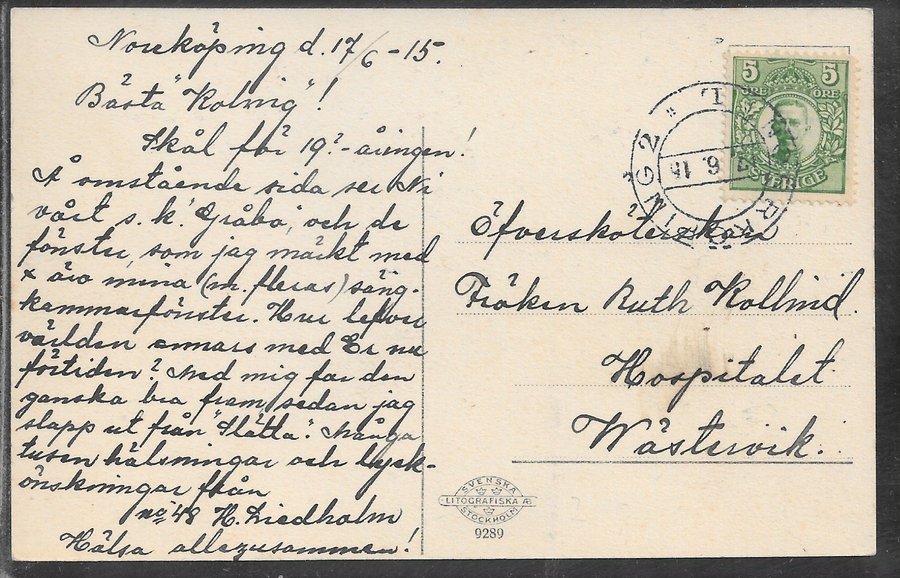 Norrköping d. 17/6 -15.
Bästa "Kolvig"!
Skål för 19?-åringen!
Å omstående sida ser Ni
vårt s. k. "Gråbo", och de
fönster, som jag märkt med
x äro mina (m. fleras) säng-
kammarfönster. Hur lefver
världen annars med Er nu
förtiden? Med mig far den
ganska bra fram, sedan jag
slapp ut från "Slätta". Många
tusen hälsningar och lyck-
önskningar från
no 48 H. Liedholm
Hälsa allezusammen!
5 5
ÖRE ÖRE
SVERIGE
NORRKÖPING 2
6 15
Öfversköterskan
Fröken Ruth Kollind.
Hospitalet
Wästervik.
SVENSKA
LITOGRAFISKA AB
STOCKHOLM
9289